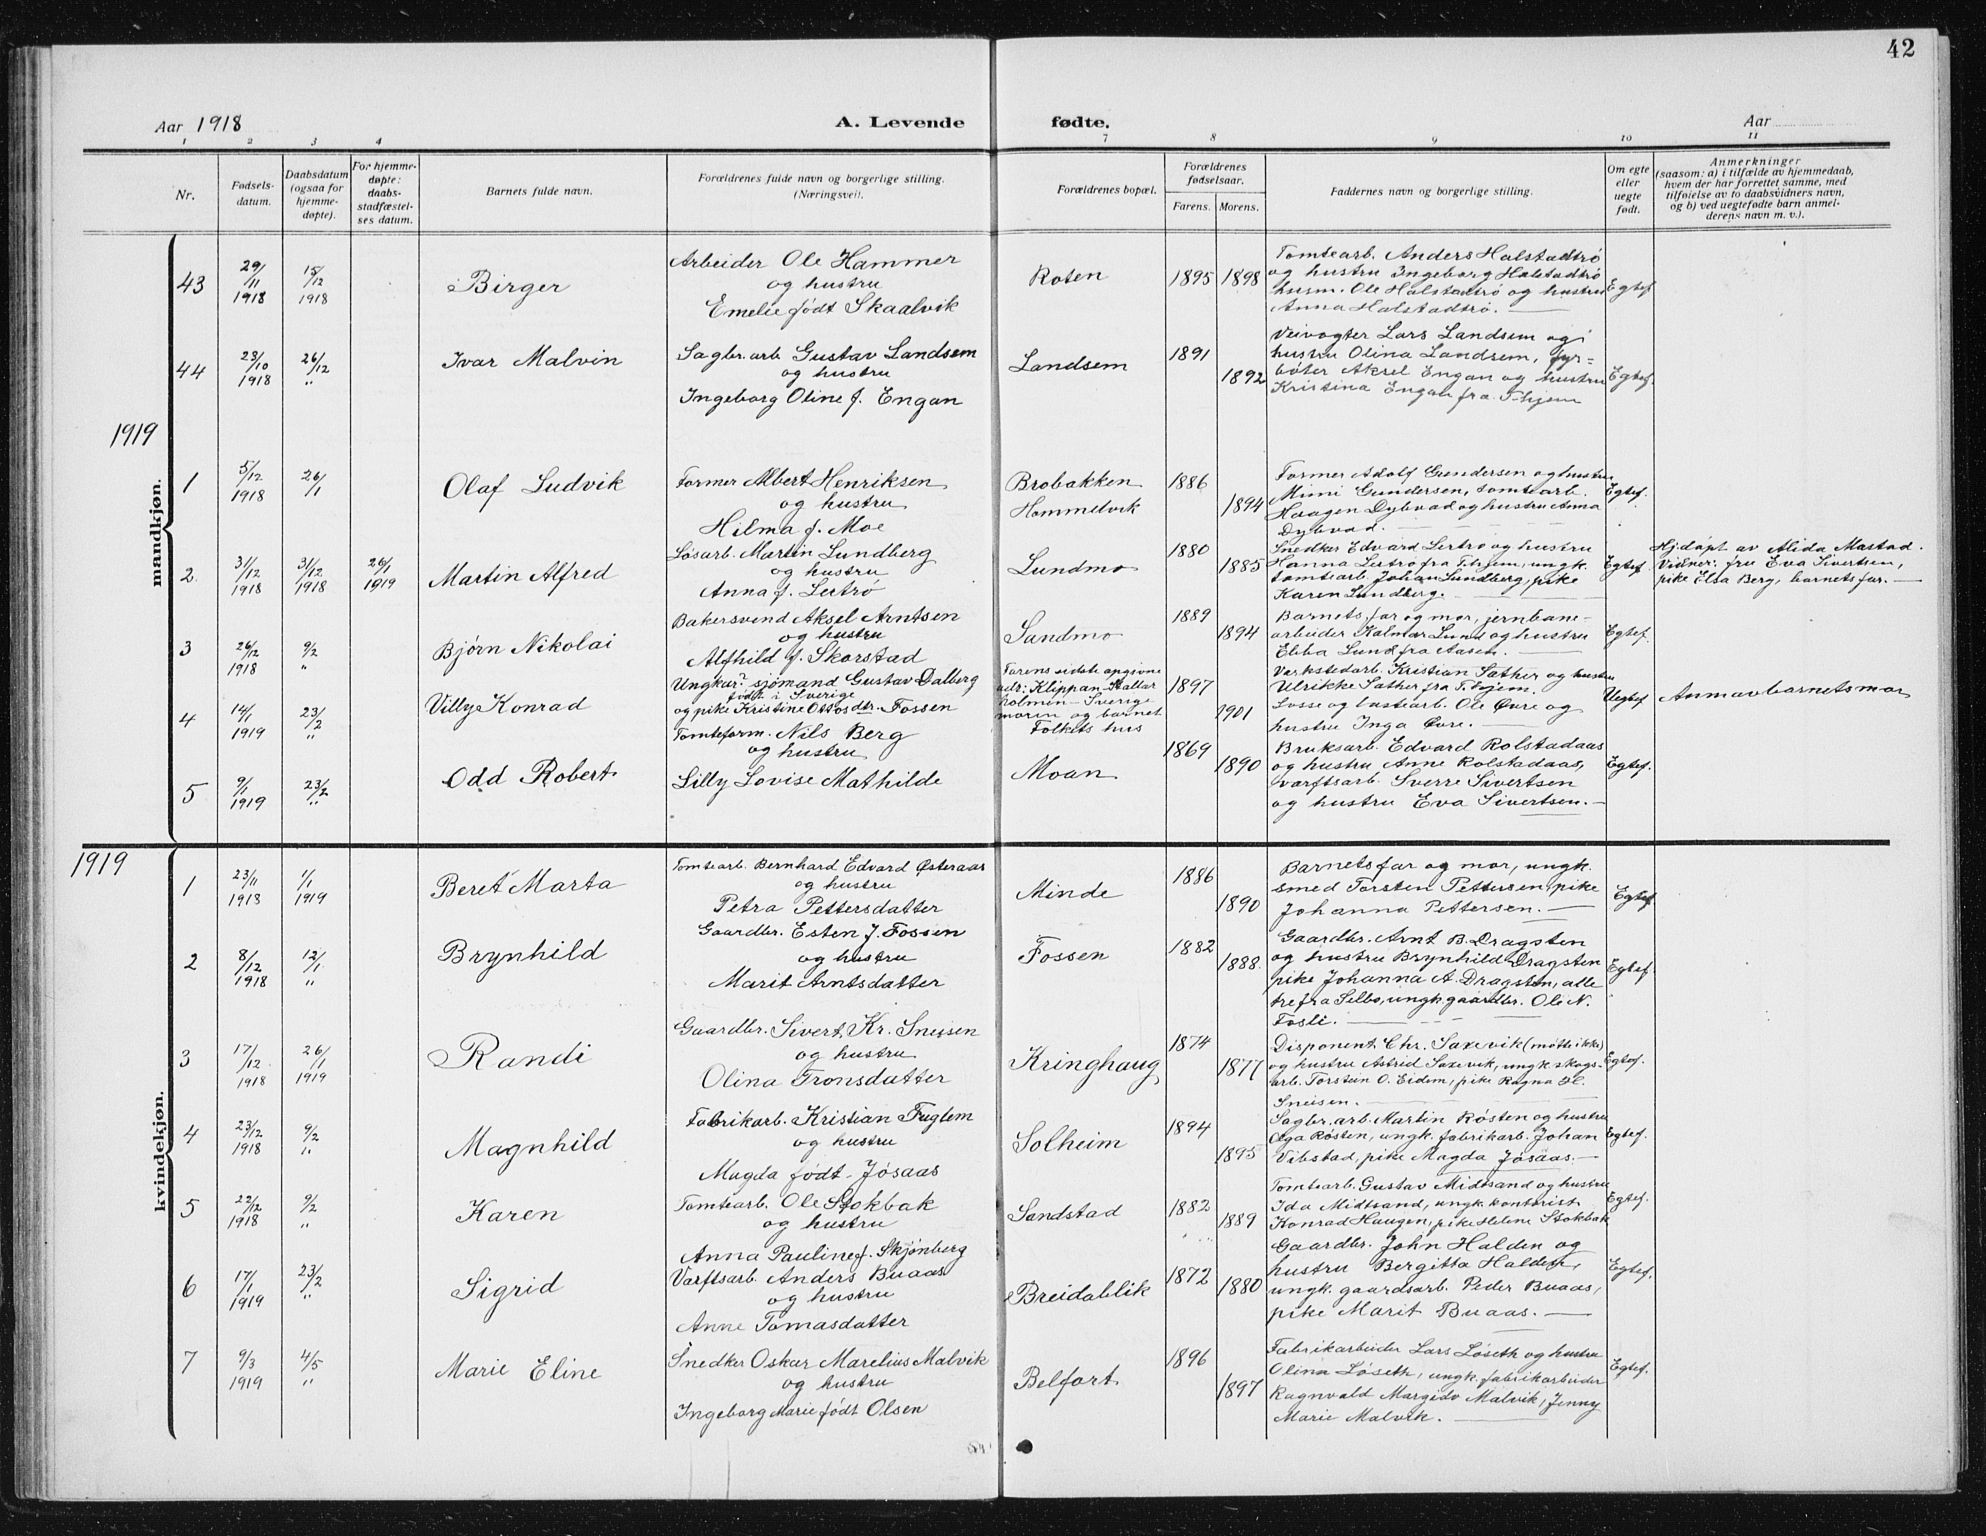 42
Aar 1918
A. Levende fødte.
Aar
1 2 3 4 7 8 9 10 11
Nr.
Fødsels-
datum.
Daabsdatum
(ogsaa for
hjemme-
døpte).
For hjemme-
døpte:
daabs-
stadfæstel-
ses datum.
Barnets fulde navn.
Forældrenes fulde navn og borgerlige stilling.
(Næringsvei).
Forældrenes bopæl.
Forældrenes
fødselsaar.
Farens. Morens.
Faddernes navn og borgerlige stilling.
Om egte
eller
uegte
født.
Anmerkninger
(saasom: a) i tilfælde av hjemmedaab,
hvem der har forrettet samme, med
tilføielse av to daabsvidners navn,
og b) ved uegtefødte barn anmel-
derens navn m. v.).
mandkjøn.
43
29/11
1918
15/12
1918
Birger
Arbeider Ole Hammer
og hustru
Emelie født Skaalvik
Roten
1895 1898
Tomtearb. Anders Halstadtrø
og hustru Ingeborg Halstadtrø
husm. Ole Halstadtrø og hustru
Anna Halstadtrø. —
Egtef.
44
23/10
1918
26/12
"
Ivar Malvin
Sagbr. arb Gustav Landsem
og hustru
Ingeborg Oline f. Engan
Landsem
1891
1892
Veivogter Lars Landsem og
hustru Olina Landsem, fyr=
bøter Aksel Engan og hustru
Kristina Engan fra T-hjem
Egtef.
1919
1
5/12
1918
26/1
Olaf Ludvik
Former Albert Henriksen
og hustru
Hilma f. Moe
Brobakken
Hommelvik
1886
1894
Former Adolf Gundersen og hustru
Mimi Gundersen, tomtearb.
Haagen Dybvad og hustru Anna
Dybvad.
Egtef.
2
31/12
1918
31/12
1918
26/1
1919
Martin Alfred
Løsarb. Martin Lundberg
og hustru
Anna f. Lertrø
Lundmo
1880
1885
Snedker Edvard Lertrø og hustru
Hanna Lertrø fra T.hjem, ungk.
tomtearb. Johan Lundberg, pike
Karen Lundberg.
Egtef.
Hj.døpt av Alida Mastad.
Vidner: fru Eva Sivertsen,
pike Elsa Berg, barnets far. —
3
26/12
1918
9/2
"
Bjørn Nikolai
Bakersvend Aksel Arntsen
og hustru
Alfhild f. Skorstad
Sandmo
1889
1894
Barnets far og mor, jernbane-
arbeider Halmar Lund og hustru
Ebba Lund fra Aasen. —
Egtef.
4
14/1
1919
23/2
"
Villy Konrad
Ungkar, sjømand Gustav Dalberg
født i Sverige
og pike Kristine Ottosdtr. Fossen
Farens sidste opgivne
adr: Klippan-Kallar
holmen - Sverige
moren og barnet
Folkets hus
1897
1901
Verkstedarb. Kristian Sæther og hustru
Ulrikke Sæther fra T.hjem.
Losse og lastearb. Ole Øvre og
hustru Inga Øvre. —
Uegtef
Anm av barnets mor
5
9/1
1919
23/2
"
Odd Robert
Tomteform. Nils Berg
og hustru
Lilly Lovise Mathilde
Moan
1869
1890
Bruksarb. Edvard Rolstadaas
og hustru Anne Rolstadaas,
varftsarb. Sverre Sivertsen
og hustru Eva Sivertsen. —
Egtef.
1919
kvindekjøn.
1
23/11
1918
1/1
1919
Beret Marta
Tomtearb. Bernhard Edvard Østeraas
og hustru
Petra Pettersdatter
Minde
1886
1890
Barnets far og mor, ungk.
smed Torsten Pettersen, pike
Johanna Pettersen. —
Egtef
2
8/12
1918
12/1
"
Brynhild
Gaardbr. Esten J. Fossen
og hustru
Marit Arntsdatter
Fossen
1882
1888
Gaardbr. Arnt B. Dragsten
og hustru Brynhild Dragsten
pike Johanna A. Dragsten, alle
tre fra Selbo, ungk. gaardbr. Ole N.
Fosli. —
Egtef.
3
17/12
1918
26/1
1919
Randi
Gaardbr. Sivert Kr. Sneisen
og hustru
Olina Tronsdatter
Kringhaug
1874
1877
Disponent Chr. Saxevik (møtte ikke)
og hustru Astrid Saxevik, ungk. skogs-
arb. Torstein O. Eidem, pike Ragna
Sneisen. —
Egtef.
4
23/12
1918
9/2
"
Magnhild
Fabrikarb. Kristian Fuglem
og hustru
Magda født Jøsaas
Solheim
1894
1895
Sagbr. arb. Martin Røsten og hustru
Olga Røsten, ungk. fabrikarb. Johan
Vibstad, pike Magda Jøsaas. —
Egtef.
5
22/12
1918
9/2
"
Karen
Tomtearb. Ole Stokbak
og hustru
Anna Pauline f. Skjønberg
Sandstad
1882
1889
Tomtearb. Gustav Midtsand og hustru
Ida Midtsand, ungk. kontorist
Konrad Haugen, pike Helene Stokbak
Egtef.
6
17/1
1919
23/2
"
Sigrid
Varftsarb. Anders Buaas
og hustru
Anne Tomasdatter
Breidablik
1872
1880
Gaardbr. John Halden og
hustru Bergitta Halden,
ungk. gaardsarb. Peder Buaas,
pike Marit Buaas. —
Egtef.
7
9/3
1919
4/5
"
Marie Eline
Snedker Oskar Marelius Malvik
og hustru
Ingeborg Marie født Olsen
Belfort
1896
1897
Fabrikarbeider Lars Løseth og hustru
Olina Løseth, ungk. fabrikarbeider
Ragnvald Margido Malvik, Jenny
Marie Malvik. —
Egtef.